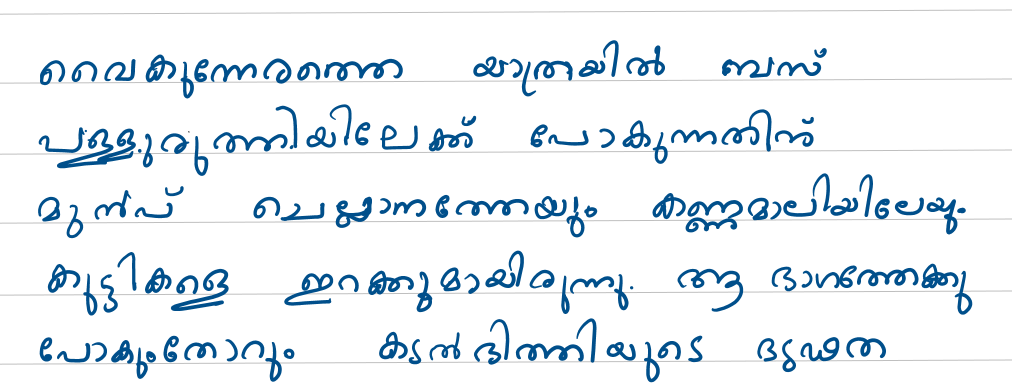 വൈകുന്നേരത്തെ യാത്രയിൽ ബസ്
പള്ളുരുത്തിയിലേക്ക് പോകുന്നതിന്
മുൻപ് ചെല്ലാനത്തേയും കണ്ണമാലിയിലേയും
കുട്ടികളെ ഇറക്കുമായിരുന്നു. ആ ഭാഗത്തേക്കു
പോകുംതോറും കടൽ ഭിത്തിയുടെ ദൃഢത